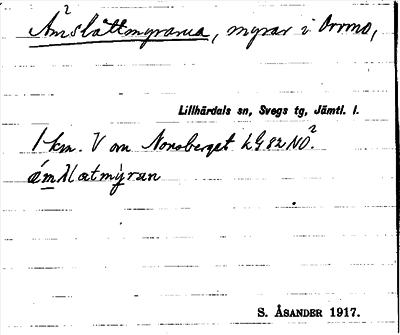 Åm²slåttmyrarna, myrar i Orrmo,
Lillhärdals sn, Svegs tg, Jämtl. l.
1 km. V om Norsberget kG 82 NO².
S. ÅSANDER 1917.